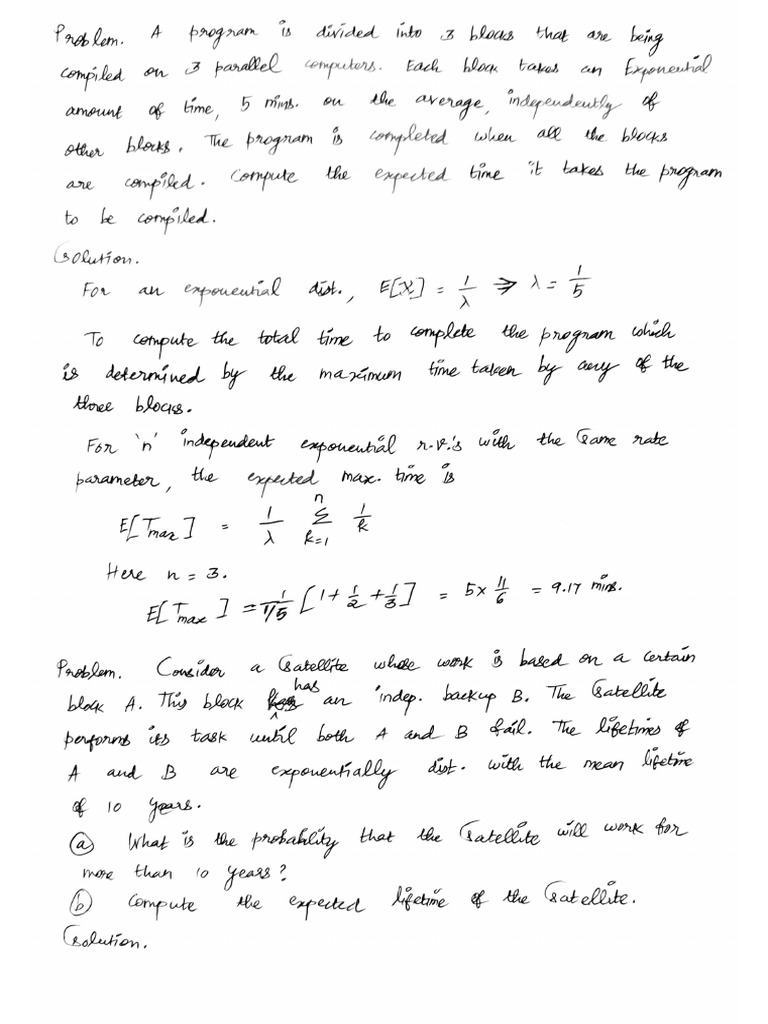 Problem. A program is divided into 3 blocks that are being
compiled on 3 parallel computers. Each block takes an Exponential
amount of time, 5 mins. on the average, independently of
other blocks. The program is completed when all the blocks
are compiled. Compute the expected time it takes the program
to be compiled.
Solution.
For an exponential dist., E[X] = 1/λ ⇒ λ = 1/5
To compute the total time to complete the program which
is determined by the maximum time taken by any of the
three blocks.
For 'n' independent exponential r.v.'s with the same rate
parameter, the expected max. time is
E[T_max] = 1/λ Σ_{k=1}^{n} 1/k
Here n = 3.
E[T_max] = 1/(1/5) [1 + 1/2 + 1/3] = 5 × 11/6 = 9.17 mins.
Problem. Consider a satellite whose work is based on a certain
block A. This block has an indep. backup B. The satellite
performs its task until both A and B fail. The lifetimes of
A and B are exponentially dist. with the mean lifetime
of 10 years.
(a) What is the probability that the satellite will work for
more than 10 years?
(b) Compute the expected lifetime of the satellite.
Solution.